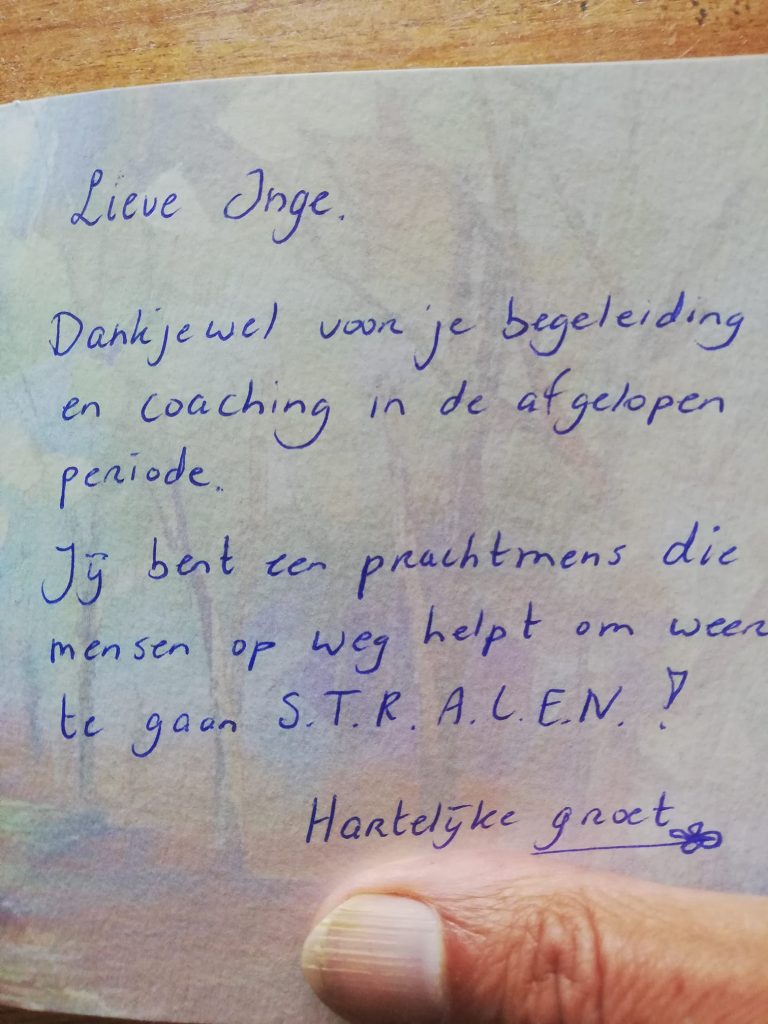 Lieve Inge.
Dankjewel voor je begeleiding
en coaching in de afgelopen
periode.
Jij bent een prachtmens die
mensen op weg helpt om weer
te gaan S.T.R.A.L.E.N.!
Hartelijke groet